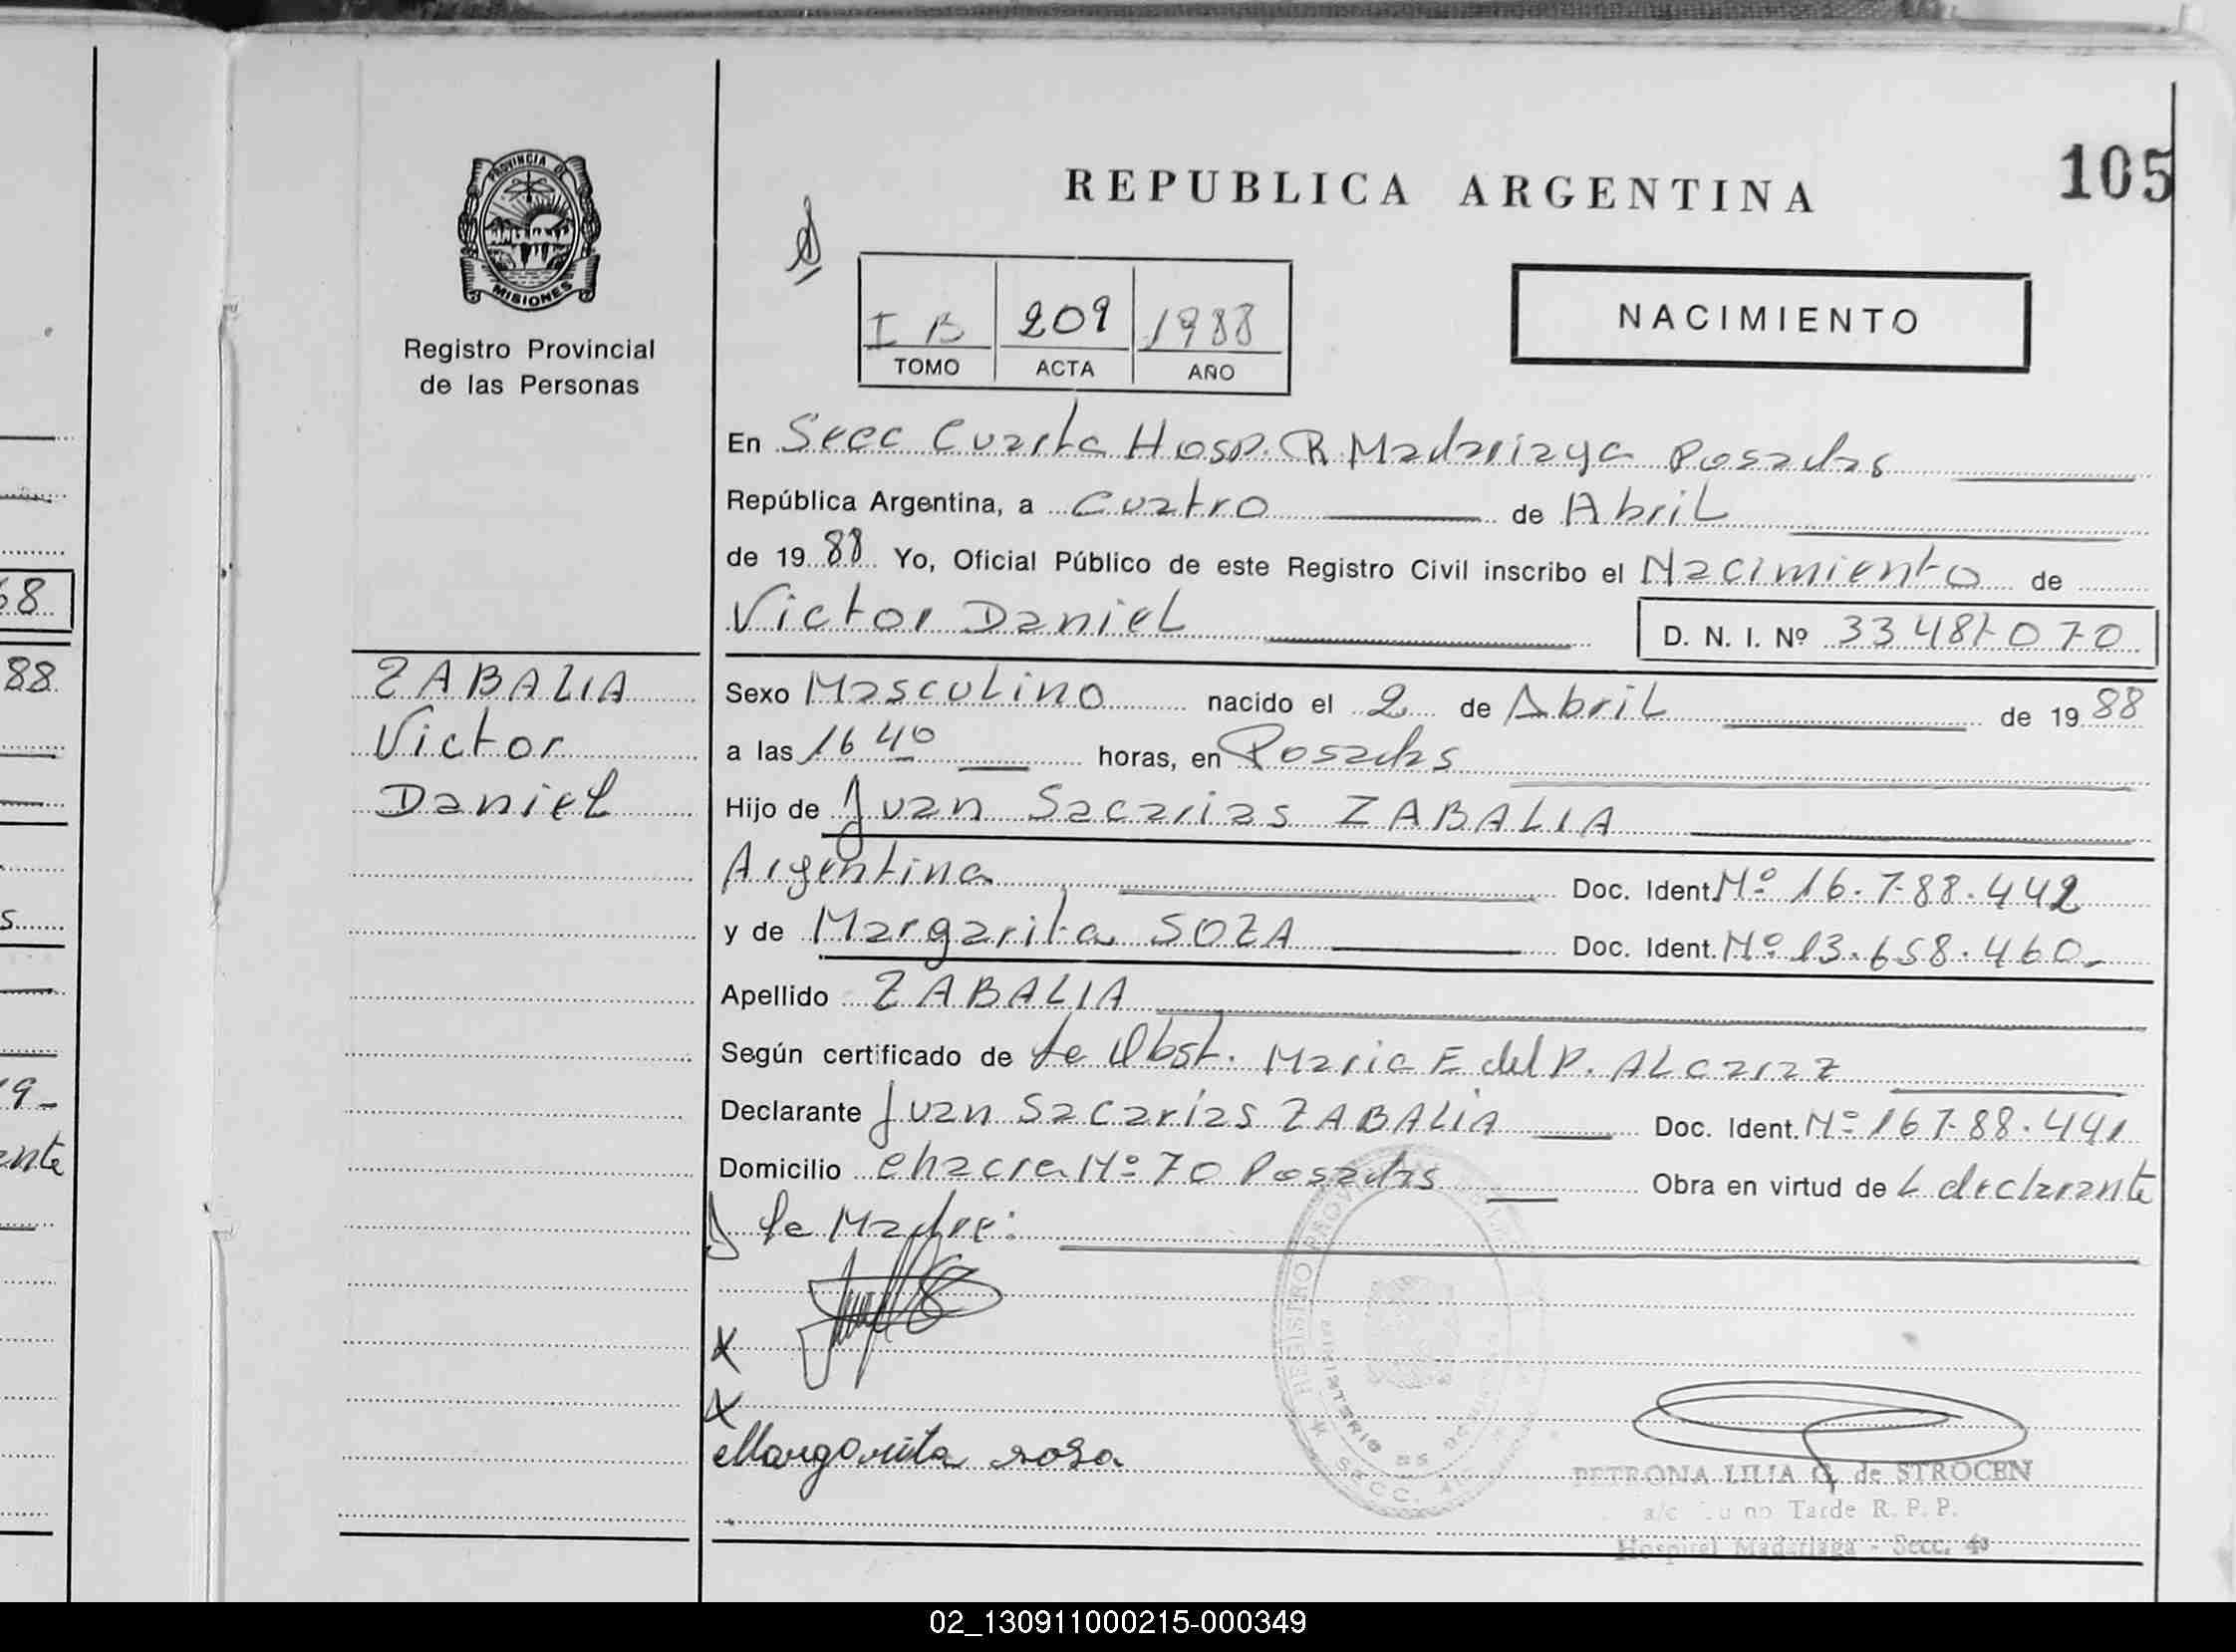 68
88
s
19-
ente
PROVINCIA DE
MISIONES
Registro Provincial
de las Personas
ZABALIA
Victor
Daniel
REPUBLICA ARGENTINA
105
I B 209 1988
TOMO ACTA AÑO
NACIMIENTO
En Secc Cuarta Hosp. R. Madariaga Posadas
República Argentina, a Cuatro de Abril
de 19 88 Yo, Oficial Público de este Registro Civil inscribo el Nacimiento de
Victor Daniel D. N. I. Nº 33.487.070
Sexo Masculino nacido el 2 de Abril de 19 88
a las 16 40 horas, en Posadas
Hijo de Juan Sacarias ZABALIA
Argentina Doc. Ident. Nº 16.788.442
y de Margarita SOZA Doc. Ident. Nº 13.658.460-
Apellido ZABALIA
Según certificado de la Obst. Maria E del P. ALcaraz
Declarante Juan Sacarias ZABALIA Doc. Ident. Nº 16788.441
Domicilio Chacra Nº 70 Posadas Obra en virtud de L declarante
y la Madre:
x
x
Margarita sosa
REGISTRO PROV
SECC. 4
PETRONA LILIA G. de STROCEN
a/c Turno Tarde R. P. P.
Hospital Madariaga - Secc. 4º
02_130911000215-000349